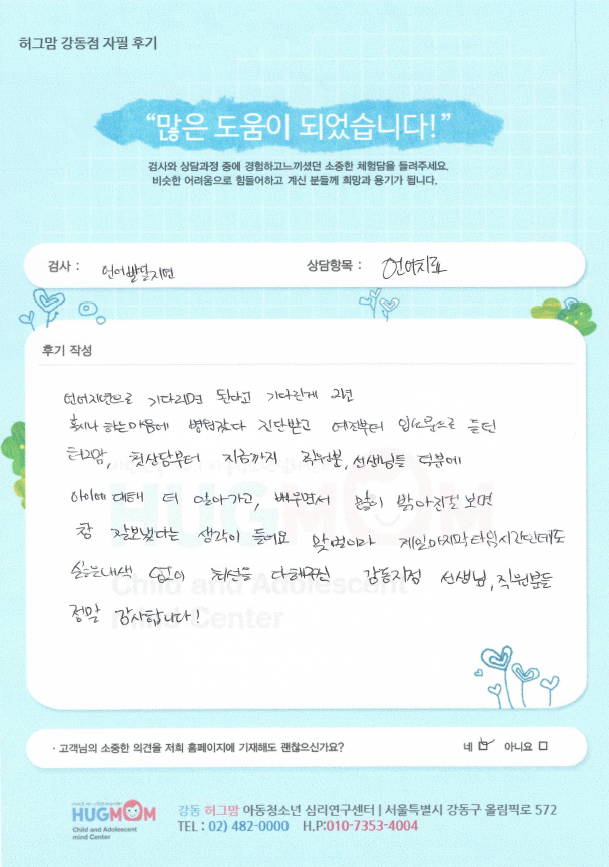 허그맘 강동점 자필 후기
“많은 도움이 되었습니다!”
검사와 상담과정 중에 경험하고느끼셨던 소중한 체험담을 들려주세요.
비슷한 어려움으로 힘들어하고 계신 분들께 희망과 용기가 됩니다.
검사 : 언어발달지연 상담항목 : 언어치료
후기 작성
언어지연으로 기다리면 된다고 기다린게 2년
혹시나 하는마음에 병원갔다 진단받고 예전부터 입소문으로 듣던
허그맘, 첫상담부터 지금까지 직원분, 선생님들 덕분에
아이에 대해 더 알아가고, 배우면서 많이 밝아진걸 보면
참 잘보냈다는 생각이 들어요 맞벌이라 제일마지막타임시간인데도
싫은내색 없이 최선을 다해주신 강동지점 선생님, 직원분들
정말 감사합니다!
HUGMOM
Child and Adolescent
mind Center
· 고객님의 소중한 의견을 저희 홈페이지에 기재해도 괜찮으신가요? 네 아니요
HUGMOM
Child and Adolescent
mind Center
강동 허그맘 아동청소년 심리연구센터 | 서울특별시 강동구 올림픽로 572
TEL : 02) 482-0000 H.P:010-7353-4004